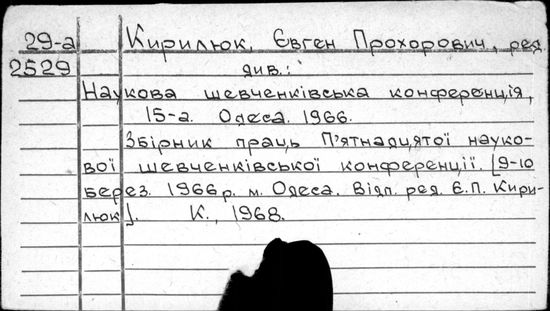 29-а Кирилюк, Євген Прохорович, ред.
2529 див.:
Наукова шевченківська конференція,
15-а. Одеса. 1966.
Збірник праць П'ятнадцятої науко-
вої шевченківської конференції. [9-10
берез. 1966 р. м. Одеса. Відп. ред. Є.П. Кири-
люк]. К., 1968.